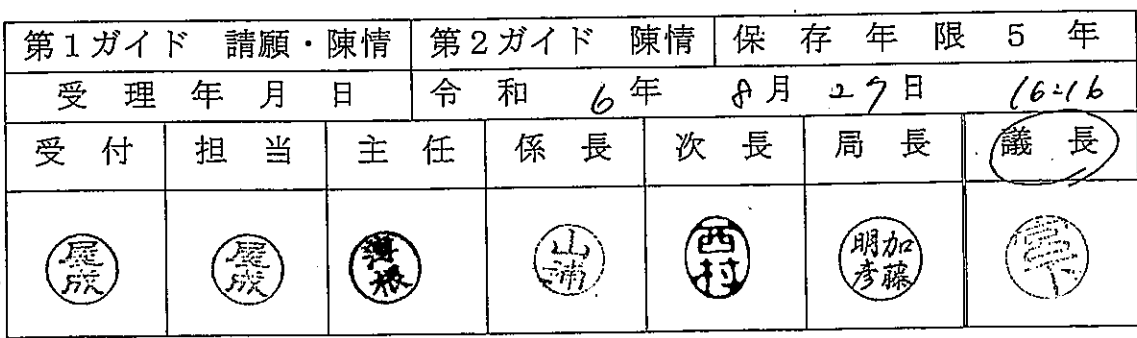 第1ガイド 請願・陳情 第2ガイド 陳情 保存年限5年
受理年月日 令和6年8月27日 16:16
受付 担当 主任 係長 次長 局長 議長
山浦 西村 加藤明彦 宮下